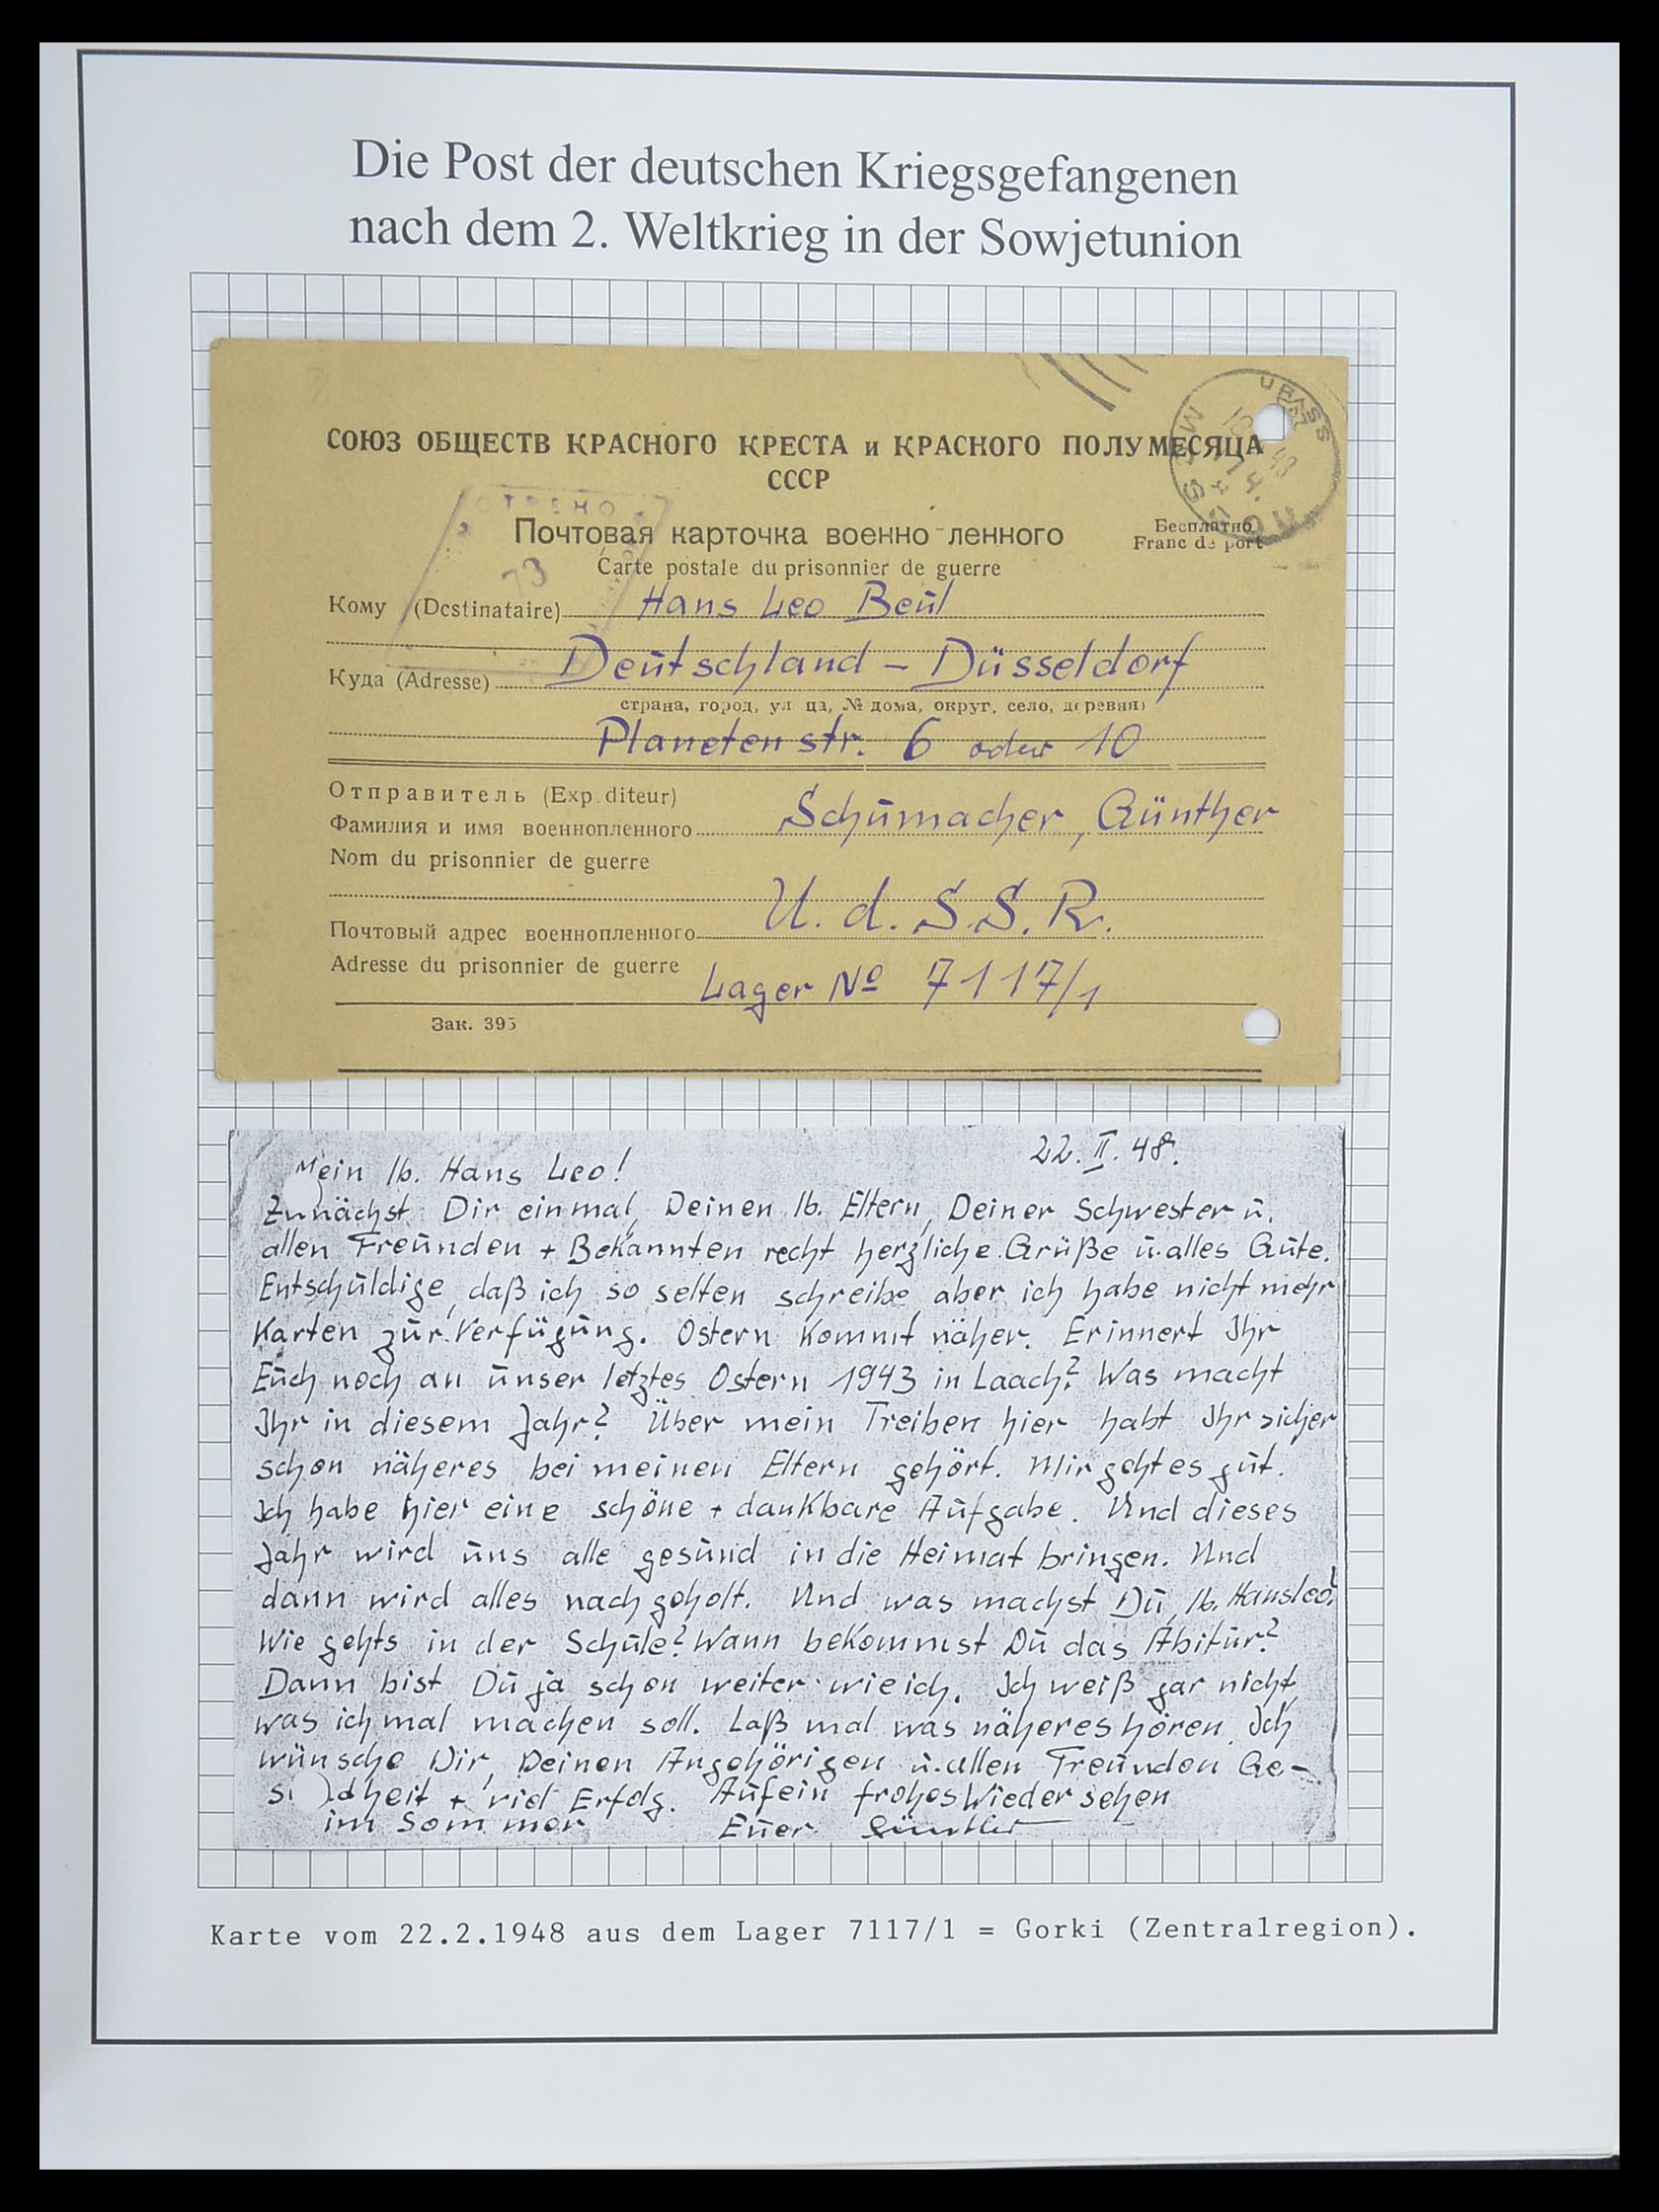 Die Post der deutschen Kriegsgefangenen
nach dem 2. Weltkrieg in der Sowjetunion
СОЮЗ ОБЩЕСТВ КРАСНОГО КРЕСТА и КРАСНОГО ПОЛУМЕСЯЦА
СССР
Почтовая карточка военно-ленного
Бесплатно
Franc de port
Carte postale du prisonnier de guerre
Кому (Destinataire) Hans Leo Beül
Куда (Adresse) Deutschland - Düsseldorf
страна, город, ул ца, № дома, округ, село, деревня
Planetenstr. 6 oder 10
Отправитель (Exp diteur)
Фамилия и имя военнопленного Schumacher, Günther
Nom du prisonnier de guerre
U. d. S. S. R.
Почтовый адрес военнопленного
Adresse du prisonnier de guerre Lager No 7117/1
Зак. 395
22. II. 48.
Mein lb. Hans Leo!
Zunächst Dir einmal, Deinen lb. Eltern, Deiner Schwester u.
allen Freunden + Bekannten recht herzliche Grüße u. alles Gute.
Entschuldige, daß ich so selten schreibe, aber ich habe nicht mehr
Karten zur Verfügung. Ostern kommt näher. Erinnert Ihr
Euch noch an unser letztes Ostern 1943 in Laach? Was macht
Ihr in diesem Jahr? Über mein Treiben hier habt Ihr sicher
schon näheres bei meinen Eltern gehört. Mir geht es gut.
Ich habe hier eine schöne + dankbare Aufgabe. Und dieses
Jahr wird uns alle gesund in die Heimat bringen. Und
dann wird alles nachgeholt. Und was machst Du, lb. Hansleo?
Wie gehts in der Schule? Wann bekommst Du das Abitur?
Dann bist Du ja schon weiter wie ich. Ich weiß gar nicht,
was ich mal machen soll. Laß mal was näheres hören. Ich
wünsche Dir, Deinen Angehörigen u. allen Freunden Ge-
s dheit + viel Erfolg. Auf ein frohes Wiedersehen
im Sommer Euer Günther
Karte vom 22.2.1948 aus dem Lager 7117/1 = Gorki (Zentralregion).